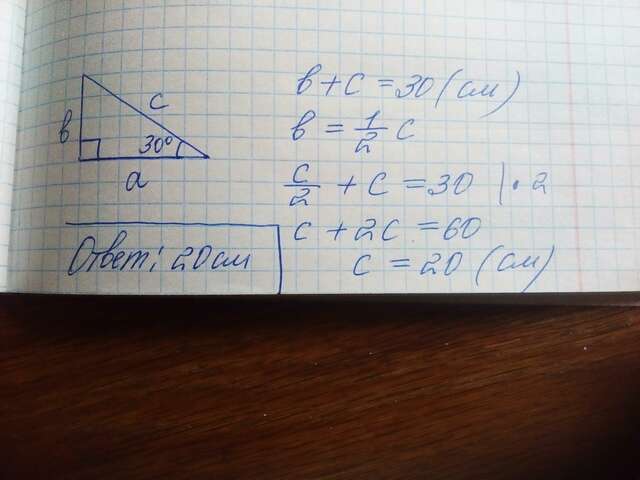 в
с
30°
а
Ответ: 20см
в + с = 30 (см)
в = 1/2 с
с/2 + с = 30 | · 2
с + 2с = 60
с = 20 (см)